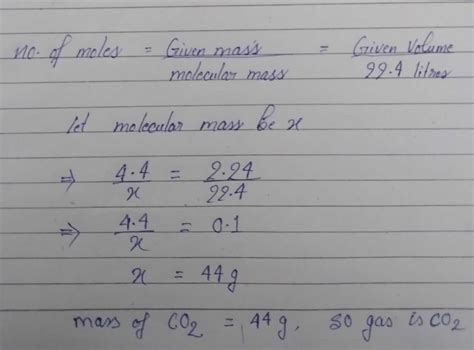 no. of moles = Given mass / molecular mass = Given Volume / 22.4 litres
let molecular mass be x
⇒ 4.4 / x = 2.24 / 22.4
⇒ 4.4 / x = 0.1
x = 44 g
mass of CO₂ = 44 g, so gas is CO₂